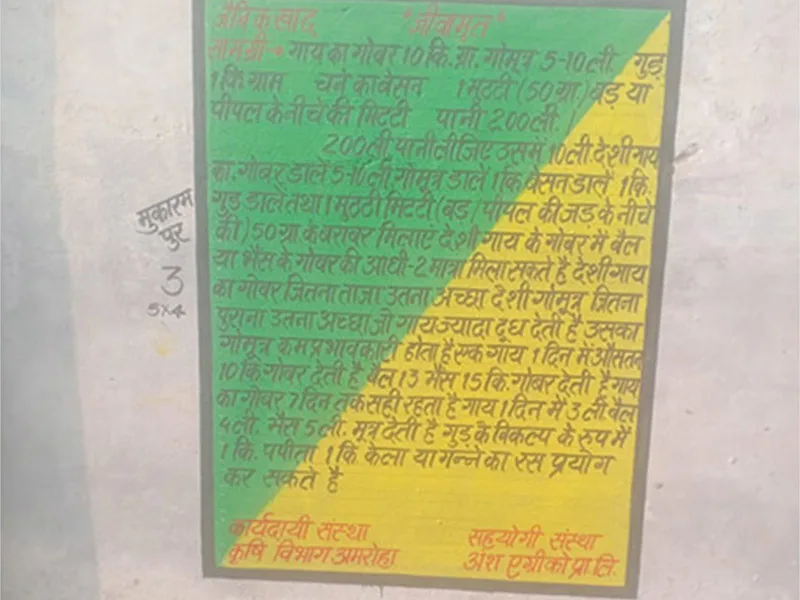 जैविक खाद "जीवामृत"
सामग्री-• गाय का गोबर 10 कि.ग्रा. गोमूत्र 5-10 ली. गुड़
1 कि. ग्राम चने का बेसन 1 मुट्टी (50 ग्रा.) बड़ या
पीपल के नीचे की मिटटी पानी 200 ली.
200 ली पानी लीजिए उसमें 10 ली. देशी गाय
का गोबर डालें 5-10 ली गोमूत्र डालें 1 कि बेसन डालें 1 कि.
गुड़ डालें तथा 1 मुठठी मिटटी (बड़ / पीपल की जड़ के नीचे
की) 50 ग्रा. के बराबर मिलाएं देशी गाय के गोबर में बैल
या भैंस के गोबर की आधी-2 मात्रा मिला सकते है देशी गाय
का गोबर जितना ताजा उतना अच्छा देशी गोमूत्र जितना
पुराना उतना अच्छा जो गाय ज्यादा दूध देती है उसका
गोमूत्र कम प्रभावकारी होता है एक गाय 1 दिन में औसतन
10 कि. गोबर देती है बैल 13 भैंस 15 कि. गोबर देती है गाय
का गोबर 7 दिन तक सही रहता है गाय 1 दिन में 3 ली. बैल
4 ली. भैंस 5 ली. मूत्र देती है गुड़ के विकल्प के रुप में
1 कि. पपीता 1 कि. केला या गन्ने का रस प्रयोग
कर सकते है
कार्यदायी संस्था
कृषि विभाग अमरोहा
सहयोगी संस्था
अंश एग्रीको प्रा. लि.
मुकारम
पुर
3
5x4